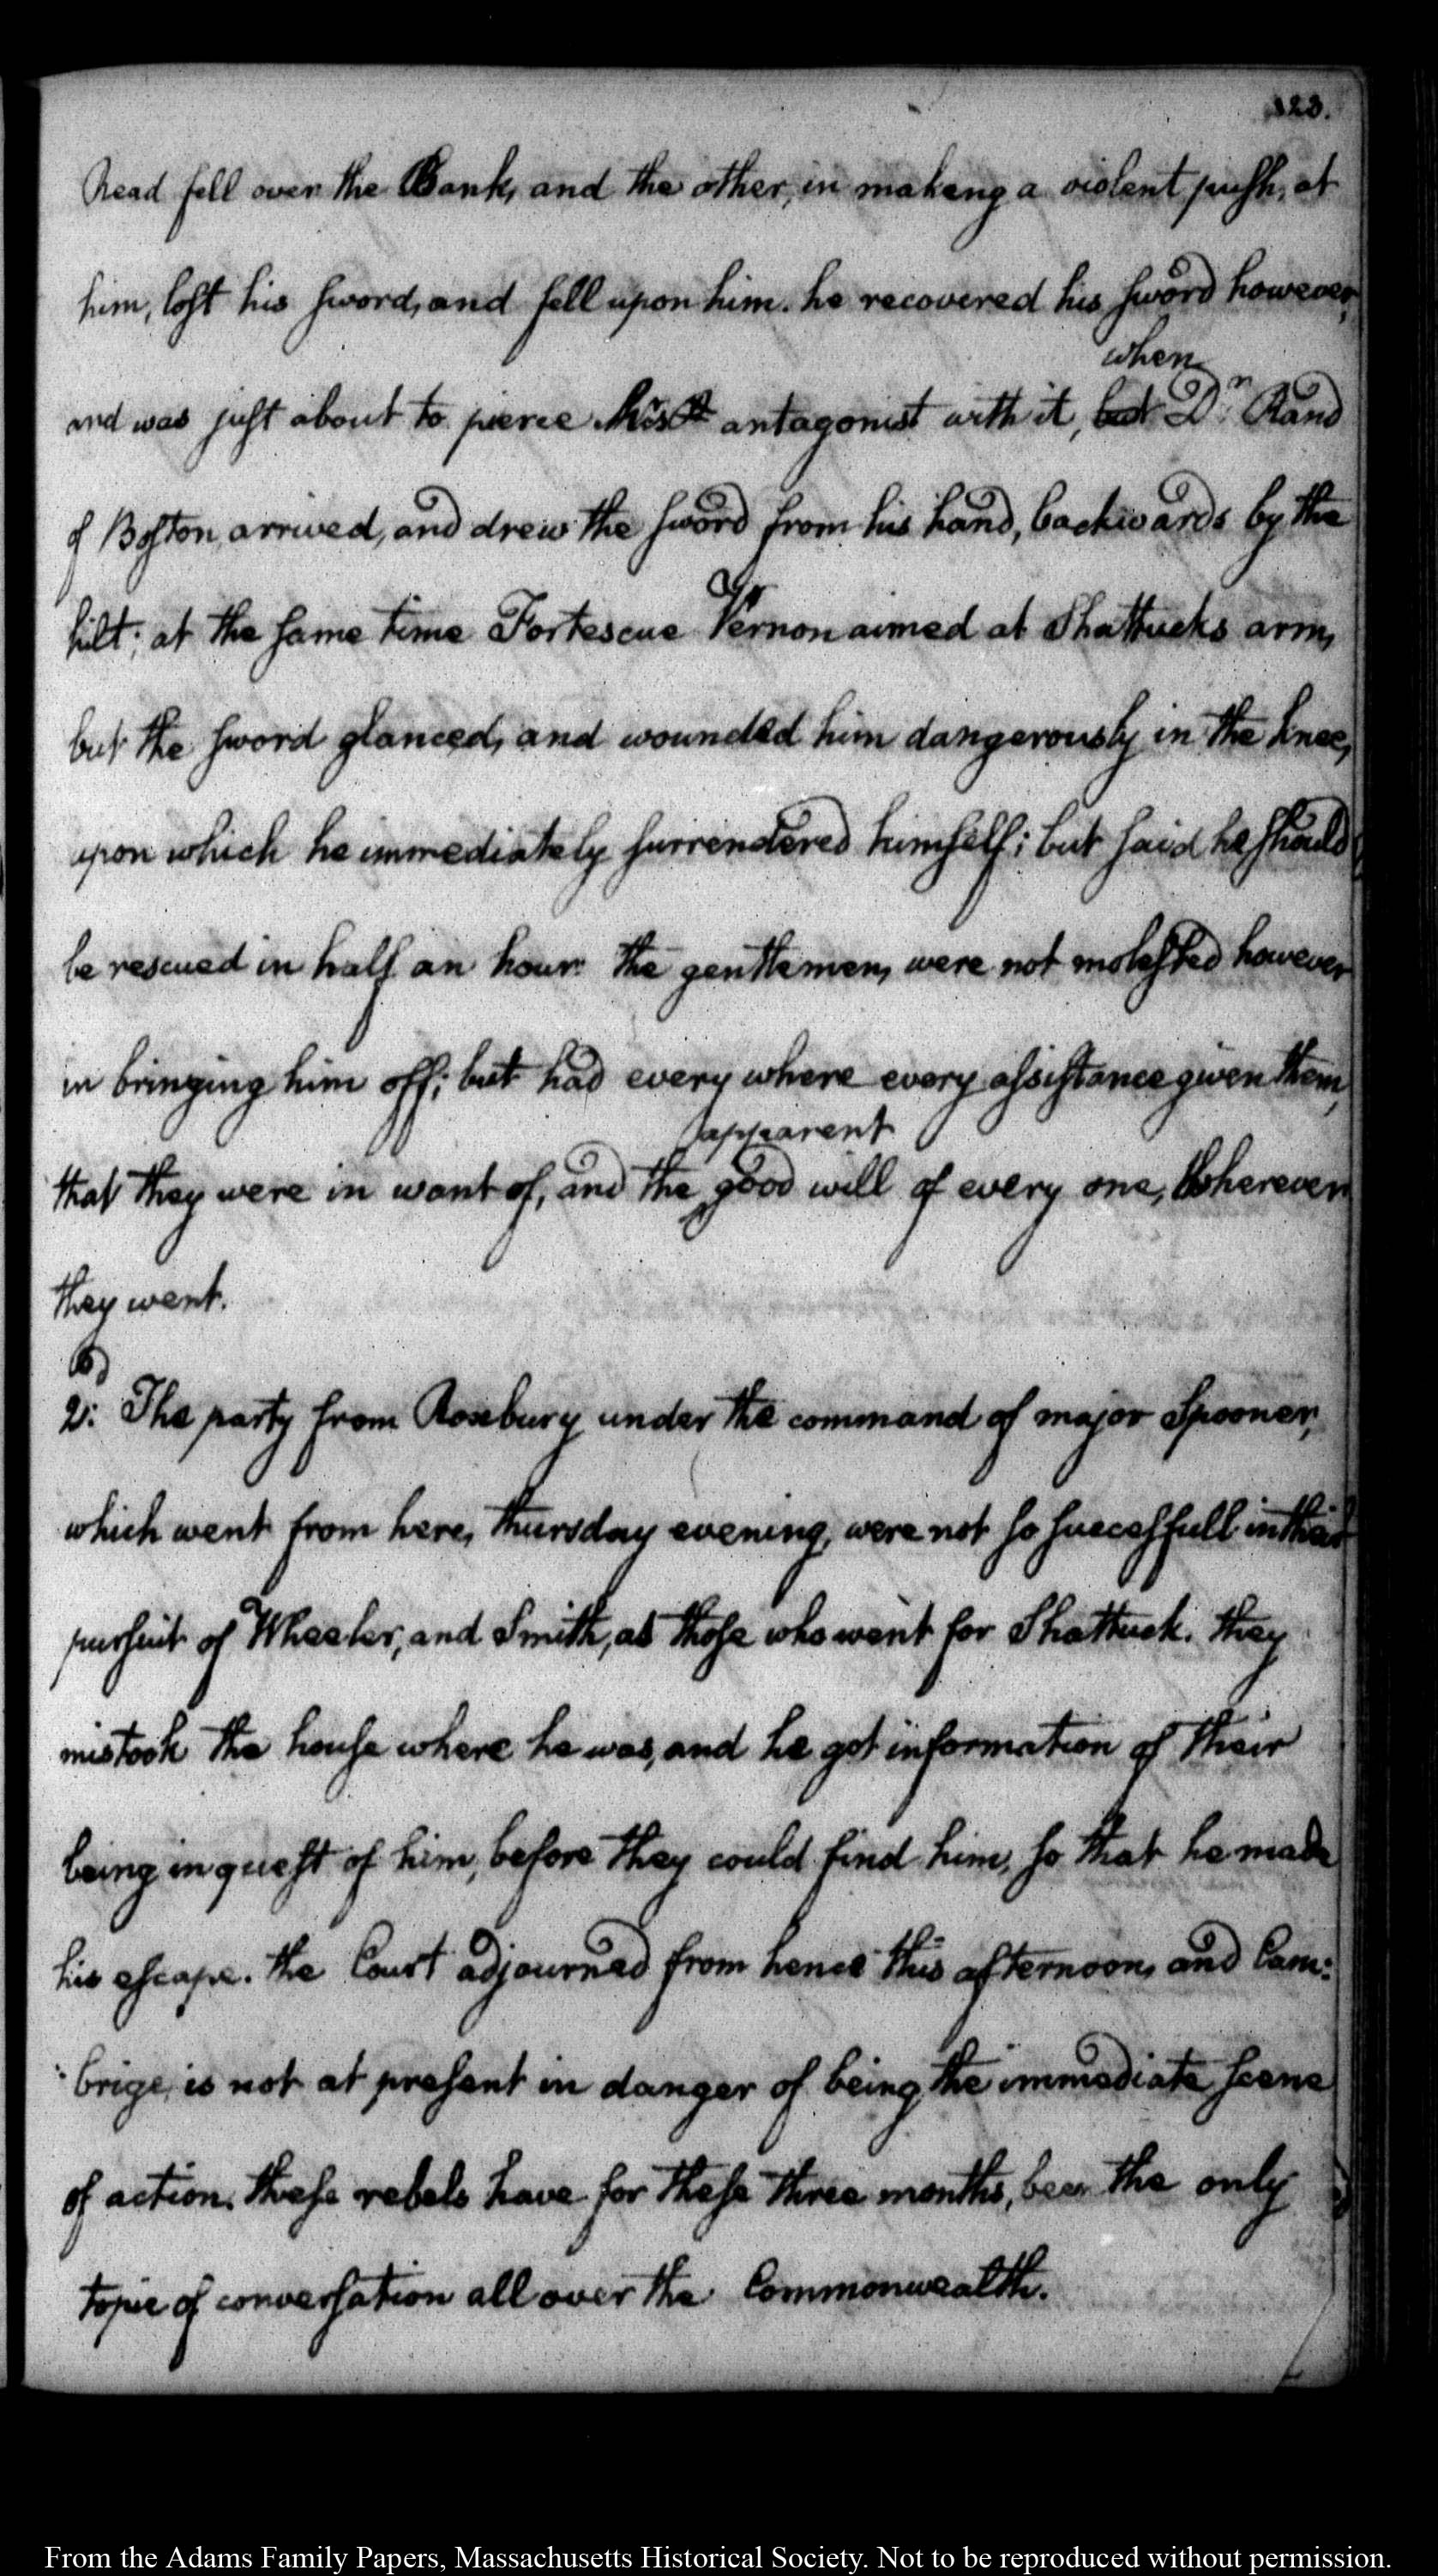 323.
Read fell over the Bank, and the other, in makeng a violent push, at
him, lost his sword, and fell upon him. he recovered his sword however,
when
and was just about to pierce his antagonist with it, but Dr. Rand
of Boston arrived, and drew the sword from his hand, backwards by the
hilt; at the same time Fortescue Vernon aimed at Shattucks arm,
but the sword glanced, and wounded him dangerously in the knee,
upon which he immediately surrendered himself; but said he should
be rescued in half an hour. The gentlemen, were not molested however
in bringing him off; but had every where every assistance given them,
apparent
that they were in want of, and the good will of every one, wherever
they went.
2: The party from Roxbury under the command of major Spooner,
which went from here, thursday evening, were not so successfull in their
pursuit of Wheeler, and Smith, as those who went for Shattuck. they
mistook the house where he was, and he got information of their
being in quest of him, before they could find him, so that he made
his escape. the Court adjourned from hence this afternoon, and Cam:
:brige, is not at present in danger of being the immediate scene
of action. these rebels have for these three months, been the only
topic of conversation all over the Commonwealth.
From the Adams Family Papers, Massachusetts Historical Society. Not to be reproduced without permission.